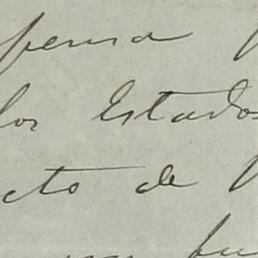 pensa
los Estados
cto de